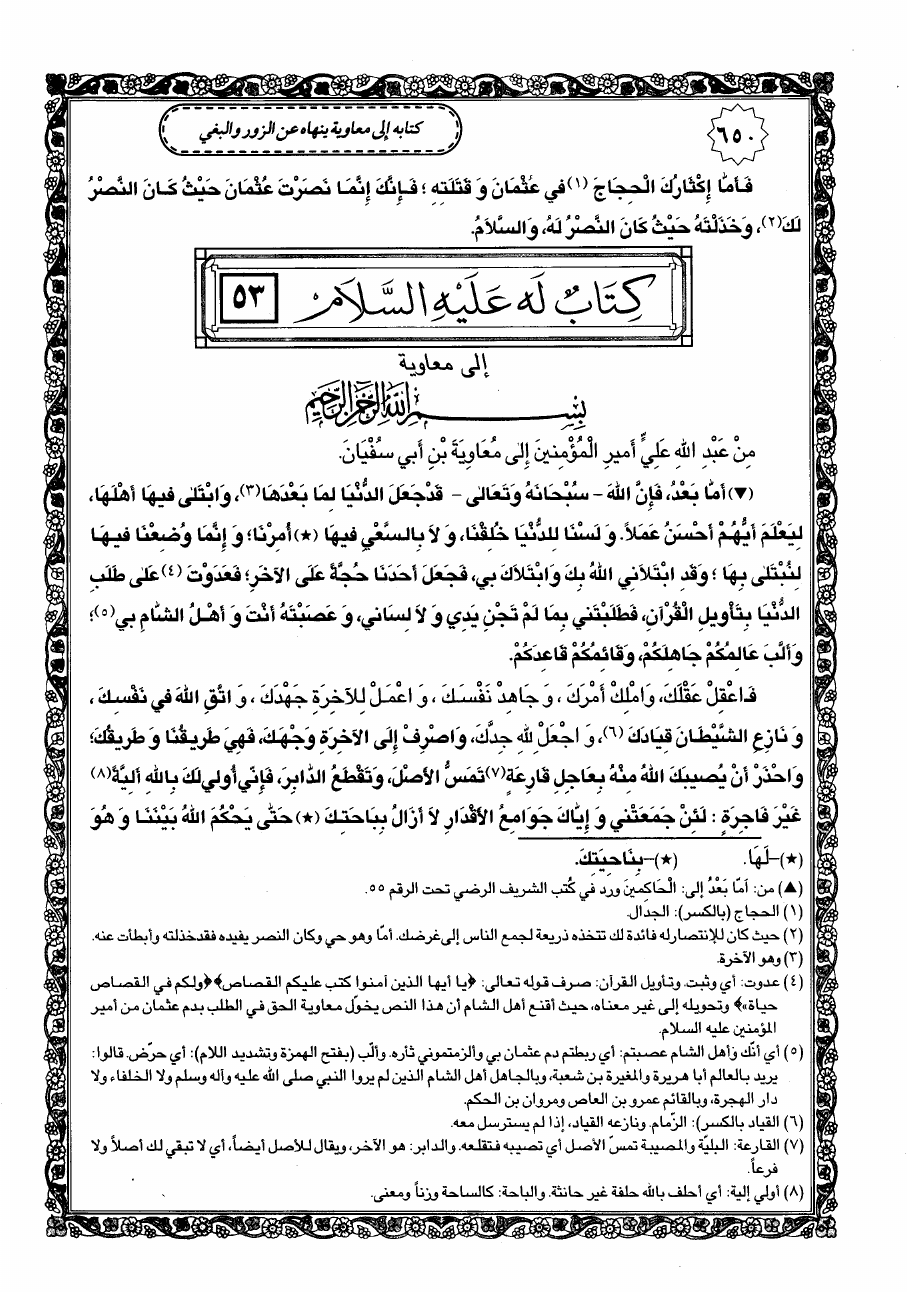 ٦٥٠
كتابه إلى معاوية ينهاه عن الزور والبغي
فَأَمَّا إِكْثَارُكَ الْحِجَاجَ (١) في عُثْمَانَ وَ قَتَلَتِهِ ؛ فَإِنَّكَ إِنَّمَا نَصَرْتَ عُثْمَانَ حَيْثُ كَانَ النَّصْرُ
لَكَ (٢)، وَخَذَلْتَهُ حَيْثُ كَانَ النَّصْرُ لَهُ، وَالسَّلَامُ.
كِتَابٌ لَه عَلَيْهِ السَّلَام ٥٣
إلى معاوية
بِسْمِ اللهِ الرَّحْمٰنِ الرَّحِيمِ
مِنْ عَبْدِ اللهِ عَلِيٍّ أَميرِ الْمُؤْمِنينَ إِلىٰ مُعَاوِيَةَ بْنِ أَبي سُفْيَانَ.
(▼) أَمَّا بَعْدُ، فَإِنَّ اللهَ - سُبْحَانَهُ وَتَعَالى - قَدْ جَعَلَ الدُّنْيَا لِمَا بَعْدَهَا (٣)، وَابْتَلى فيهَا أَهْلَهَا،
لِيَعْلَمَ أَيُّهُمْ أَحْسَنُ عَمَلاً. وَ لَسْنَا لِلدُّنْيَا خُلِقْنَا، وَ لَا بِالسَّعْيِ فيهَا (★) أُمِرْنَا؛ وَ إِنَّمَا وُضِعْنَا فيهَا
لِنُبْتَلى بِهَا ؛ وَقَدِ ابْتَلَانِي اللهُ بِكَ وَابْتَلَاكَ بي، فَجَعَلَ أَحَدَنَا حُجَّةً عَلَى الْآخَرِ؛ فَعَدَوْتَ (٤) عَلى طَلَبِ
الدُّنْيَا بِتَأْويلِ الْقُرْآنِ، فَطَلَبْتَني بِمَا لَمْ تَجْنِ يَدي وَ لَا لِسَاني، وَ عَصَبْتَهُ أَنْتَ وَ أَهْلُ الشَّامِ بي (٥)؛
وَأَلَّبَ عَالِمُكُمْ جَاهِلَكُمْ، وَقَائِمُكُمْ قَاعِدَكُمْ.
فَاعْقِلْ عَقْلَكَ، وَامْلِكْ أَمْرَكَ ، وَ جَاهِدْ نَفْسَكَ ، وَ اعْمَلْ لِلْآخِرَةِ جَهْدَكَ ، وَ اتَّقِ اللهَ في نَفْسِكَ ،
وَ نَازِعِ الشَّيْطَانَ قِيَادَكَ (٦)، وَ اجْعَلْ لِلّٰهِ جِدَّكَ، وَاصْرِفْ إِلَى الْآخِرَةِ وَجْهَكَ، فَهِيَ طَريقُنَا وَ طَريقُكَ؛
وَاحْذَرْ أَنْ يُصيبَكَ اللهُ مِنْهُ بِعَاجِلِ قَارِعَةٍ (٧) تَمَسُّ الْأَصْلَ، وَتَقْطَعُ الدَّابِرَ، فَإِنّي أُولي لَكَ بِاللهِ أَلِيَّةً (٨)
غَيْرَ فَاجِرَةٍ : لَئِنْ جَمَعَتْني وَ إِيَّاكَ جَوَامِعُ الْأَقْدَارِ لَا أَزَالُ بِبَاحَتِكَ (★) حَتّى يَحْكُمَ اللهُ بَيْنَنَا وَ هُوَ
(★)-لَهَا. (★)-بِنَاحِيَتِكَ.
(▲) من: أَمَّا بَعْدُ إلى: الْحَاكِمينَ ورد في كُتب الشريف الرضي تحت الرقم ٥٥.
(١) الحجاج (بالكسر): الجدال.
(٢) حيث كان للإنتصار له فائدة لك تتخذه ذريعة لجمع الناس إلى غرضك. أمّا وهو حي وكان النصر يفيده فقد خذلته وأبطأت عنه.
(٣) وهو الآخرة.
(٤) عدوت: أي وثبت. وتأويل القرآن: صرف قوله تعالى: ﴿يا أيها الذين آمنوا كتب عليكم القصاص﴾ ﴿ولكم في القصاص
حياة﴾ وتحويله إلى غير معناه، حيث أقنع أهل الشام أن هذا النص يخوّل معاوية الحق في الطلب بدم عثمان من أمير
المؤمنين عليه السلام.
(٥) أي أنّك وأهل الشام عصبتم: أي ربطتم دم عثمان بي وألزمتموني ثأره. وألّب (بفتح الهمزة وتشديد اللام): أي حرّض. قالوا:
يريد بالعالم أبا هريرة والمغيرة بن شعبة، وبالجاهل أهل الشام الذين لم يروا النبي صلى الله عليه وآله وسلم ولا الخلفاء ولا
دار الهجرة، وبالقائم عمرو بن العاص ومروان بن الحكم.
(٦) القياد (بالكسر): الزّمام. ونازعه القياد، إذا لم يسترسل معه.
(٧) القارعة: البليّة والمصيبة تمسّ الأصل أي تصيبه فتقلعه. والدابر: هو الآخر، ويقال للأصل أيضاً، أي لا تبقي لك أصلاً ولا
فرعاً.
(٨) أولي إلية: أي أحلف بالله حلفة غير حانثة. والباحة: كالساحة وزناً ومعنى.